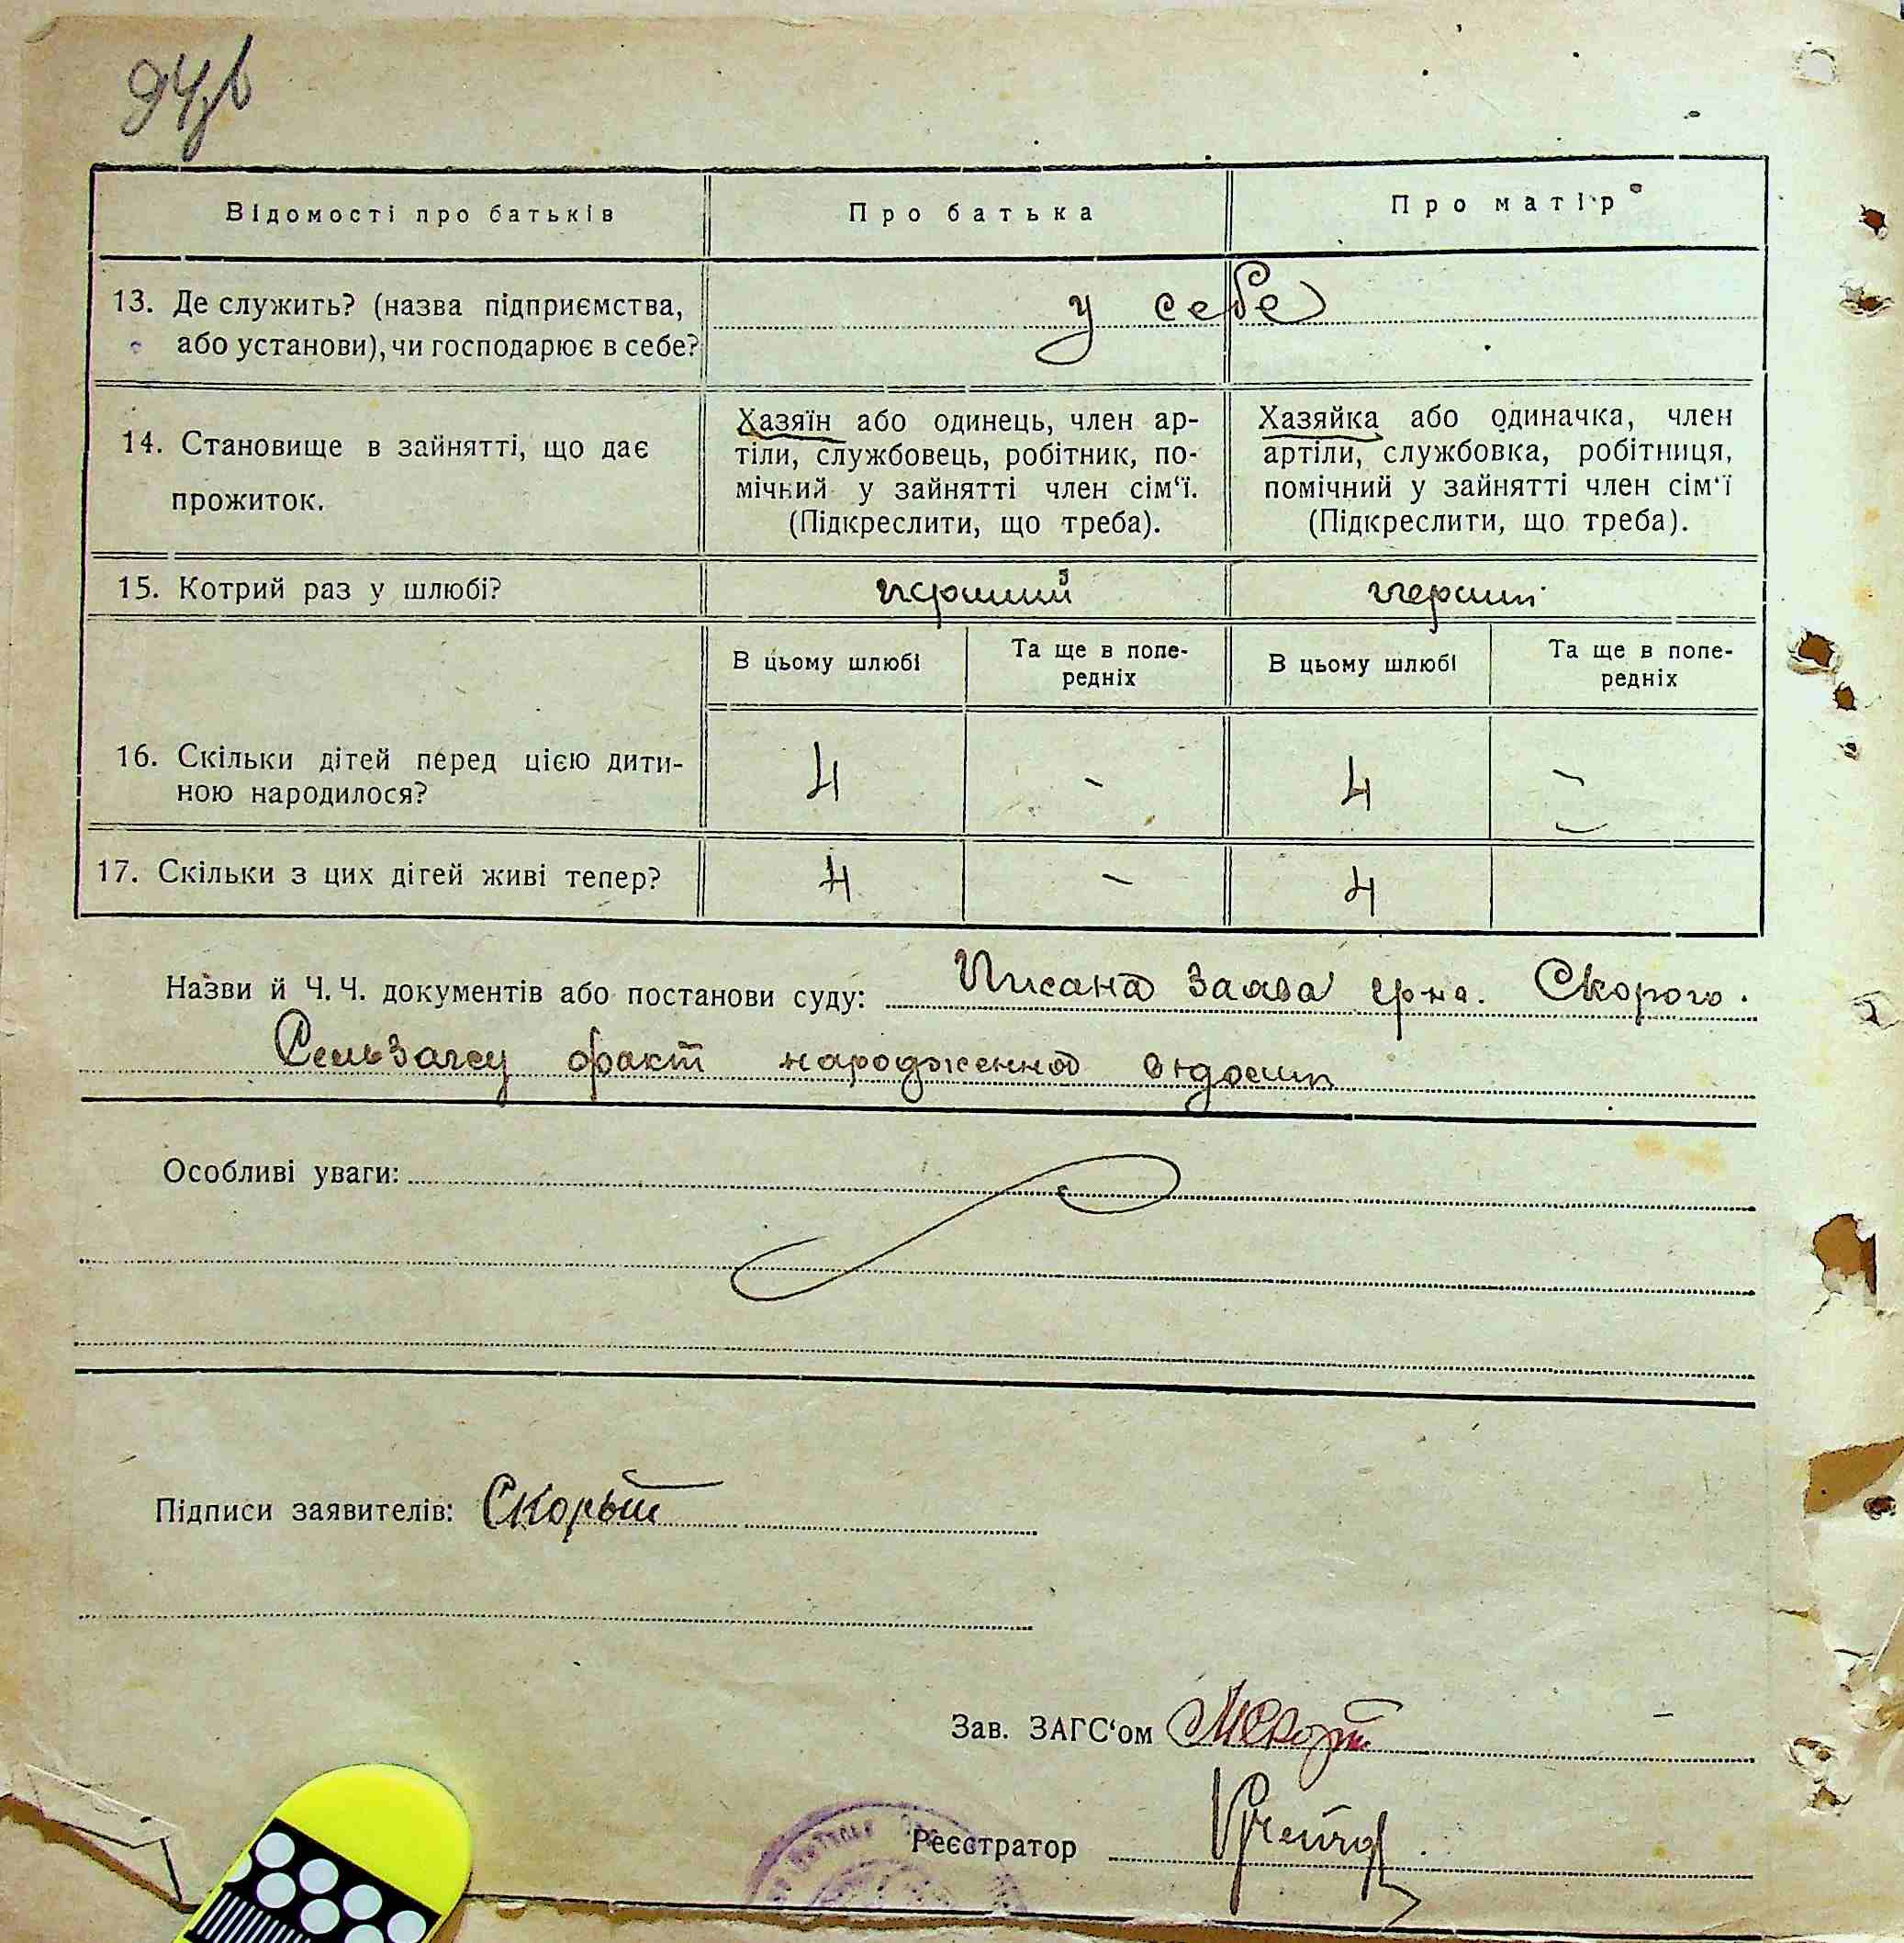 94зв
Відомості про батьків
Про батька
Про матір
13. Де служить? (назва підприємства,
або установи), чи господарює в себе?
у себе
14. Становище в зайнятті, що дає
прожиток.
Хазяїн або одинець, член ар-
тіли, службовець, робітник, по-
мічний у зайнятті член сім'ї.
(Підкреслити, що треба).
Хазяйка або одиначка, член
артіли, службовка, робітниця,
помічний у зайнятті член сім'ї
(Підкреслити, що треба).
15. Котрий раз у шлюбі?
перший
перший
В цьому шлюбі
Та ще в попе-
редніх
В цьому шлюбі
Та ще в попе-
редніх
16. Скільки дітей перед цією дити-
ною народилося?
4
-
4
-
17. Скільки з цих дітей живі тепер?
4
-
4
Назви й Ч. Ч. документів або постанови суду: Писана заява грна. Скорого.
Сельзагсу факт народження відомий
Особливі уваги:
Підписи заявителів: Скорый
Зав. ЗАГС'ом
Реєстратор